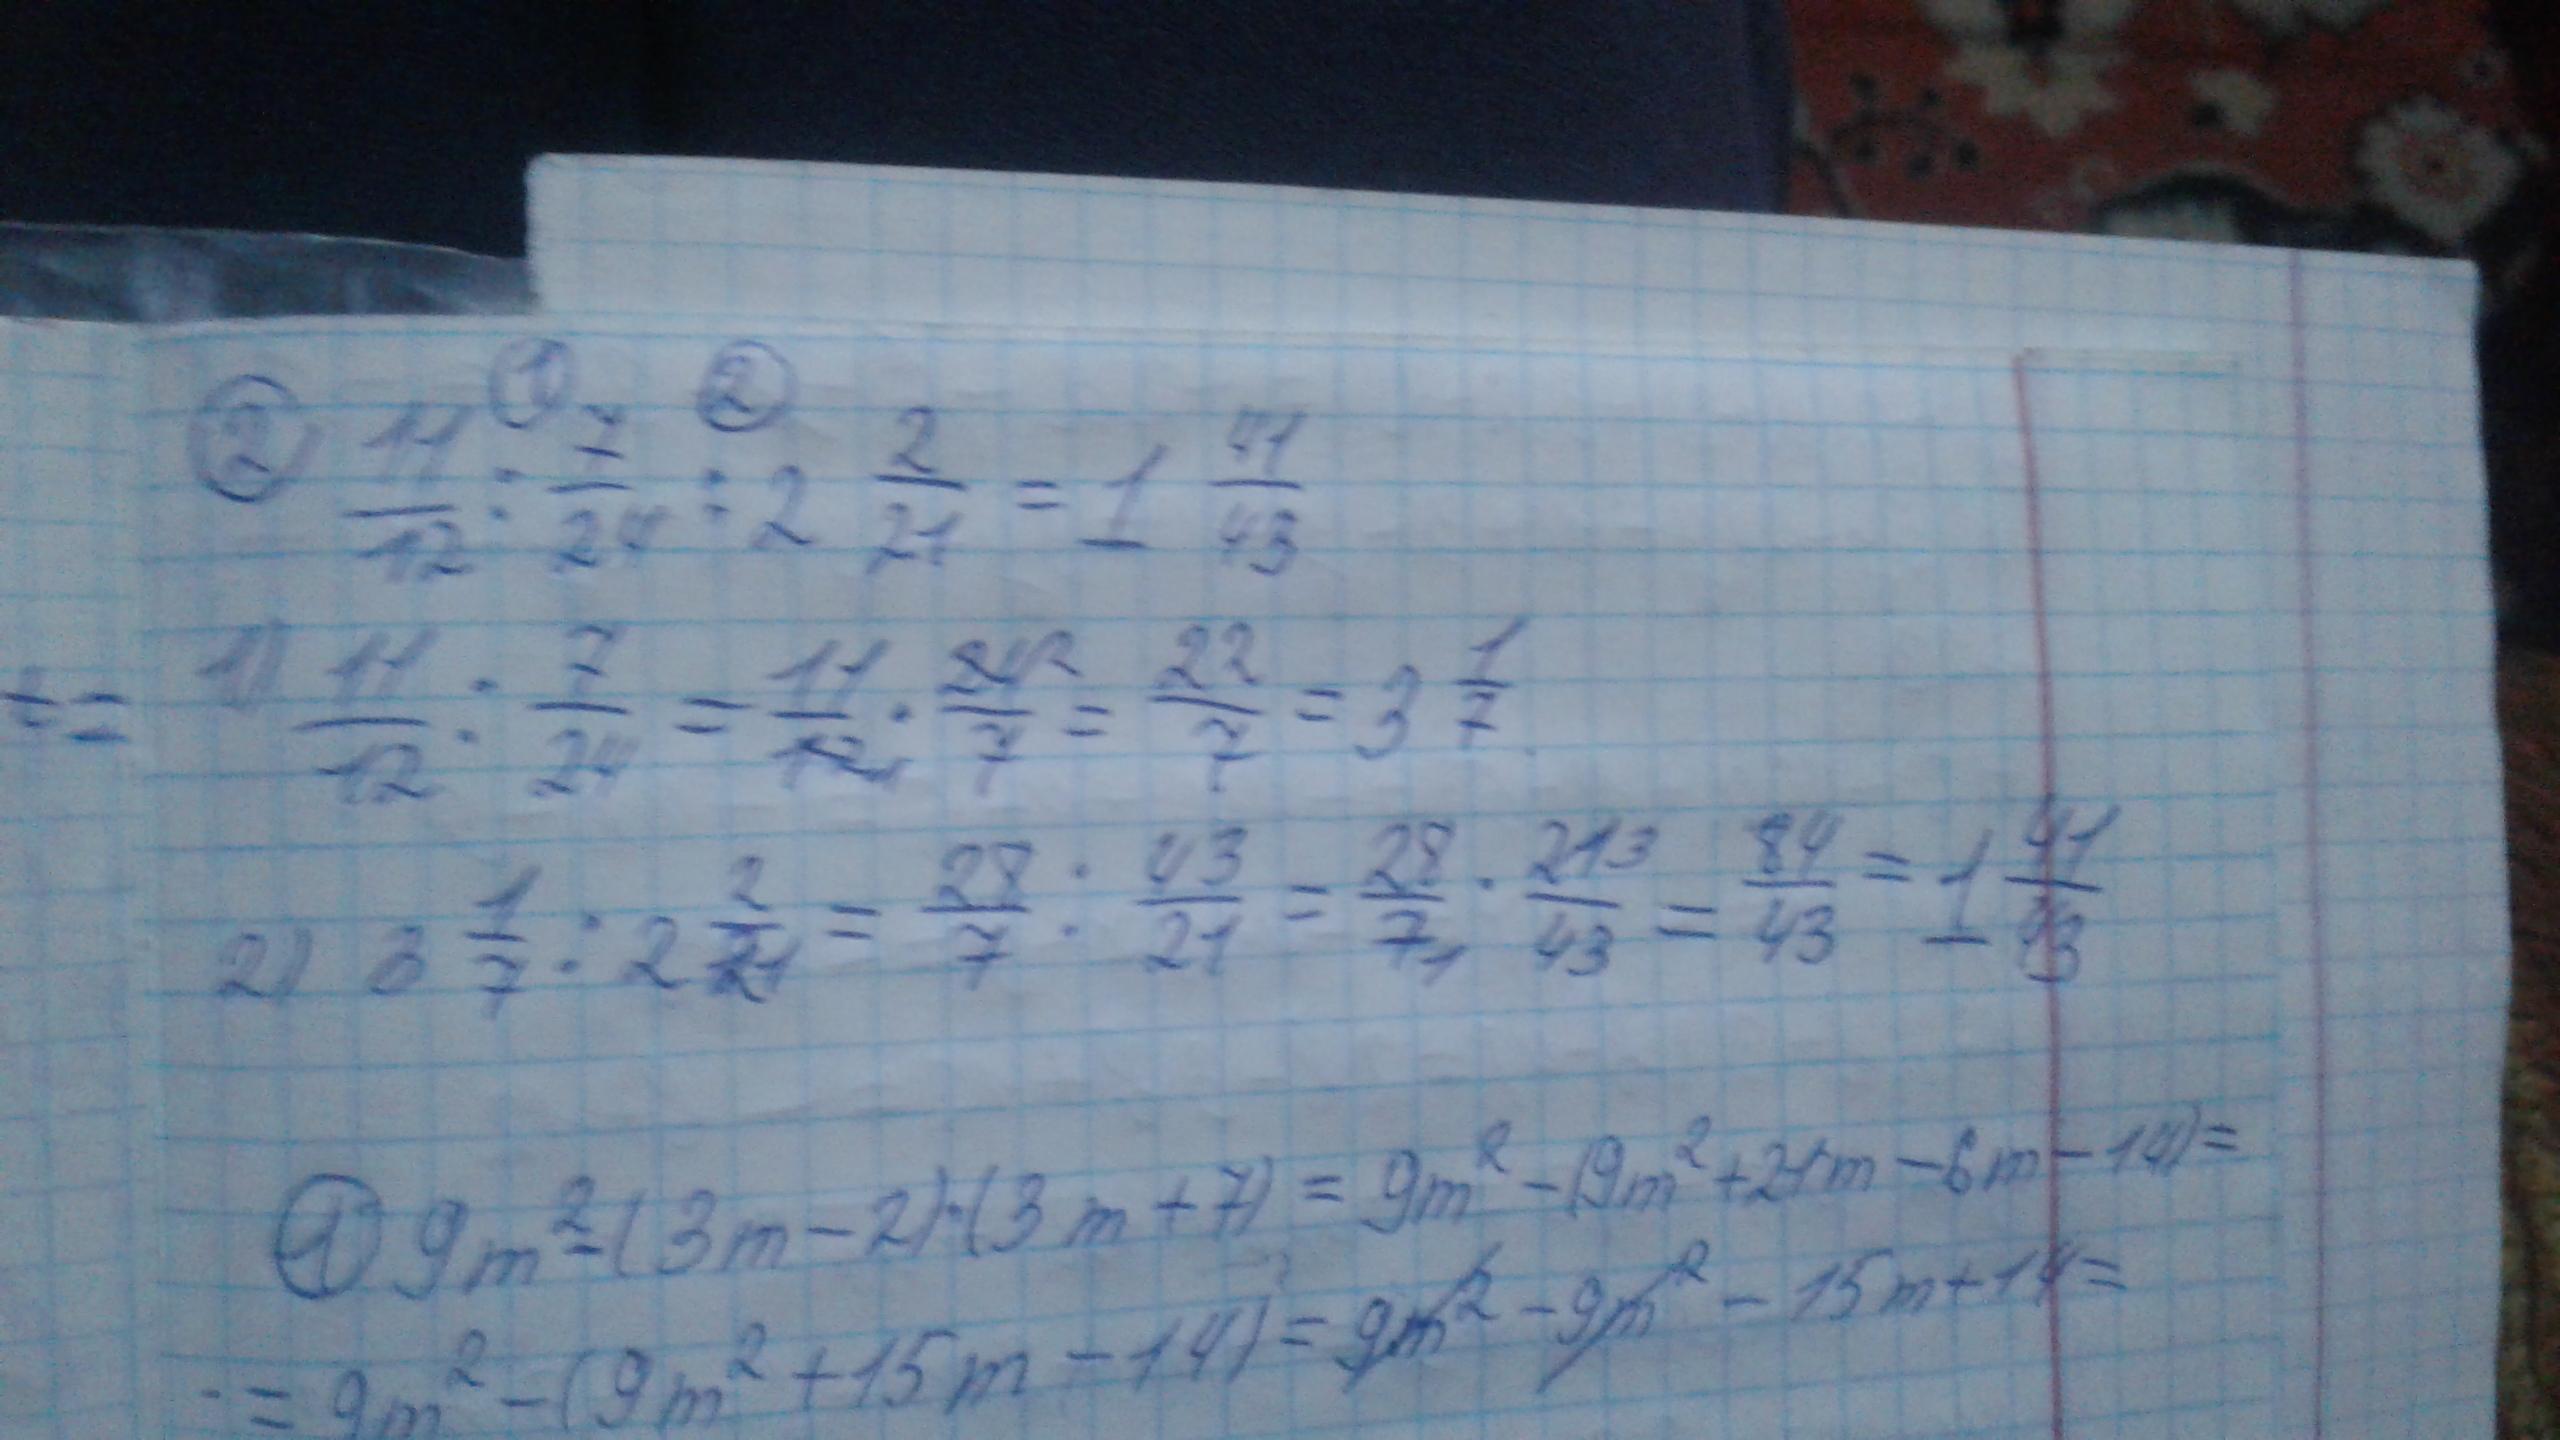 ① ②
② 11/12 : 7/24 : 2 2/21 = 1 41/43
1) 11/12 : 7/24 = 11/12 1 · 24 2/7 = 22/7 = 3 1/7
2) 3 1/7 : 2 2/21 = 28/7 : 43/21 = 28/7 1 · 21 3/43 = 84/43 = 1 41/43
① 9m² - (3m - 2)·(3m + 7) = 9m² - (9m² + 21m - 6m - 14) =
= 9m² - (9m² + 15m - 14) = 9m² - 9m² - 15m + 14 =